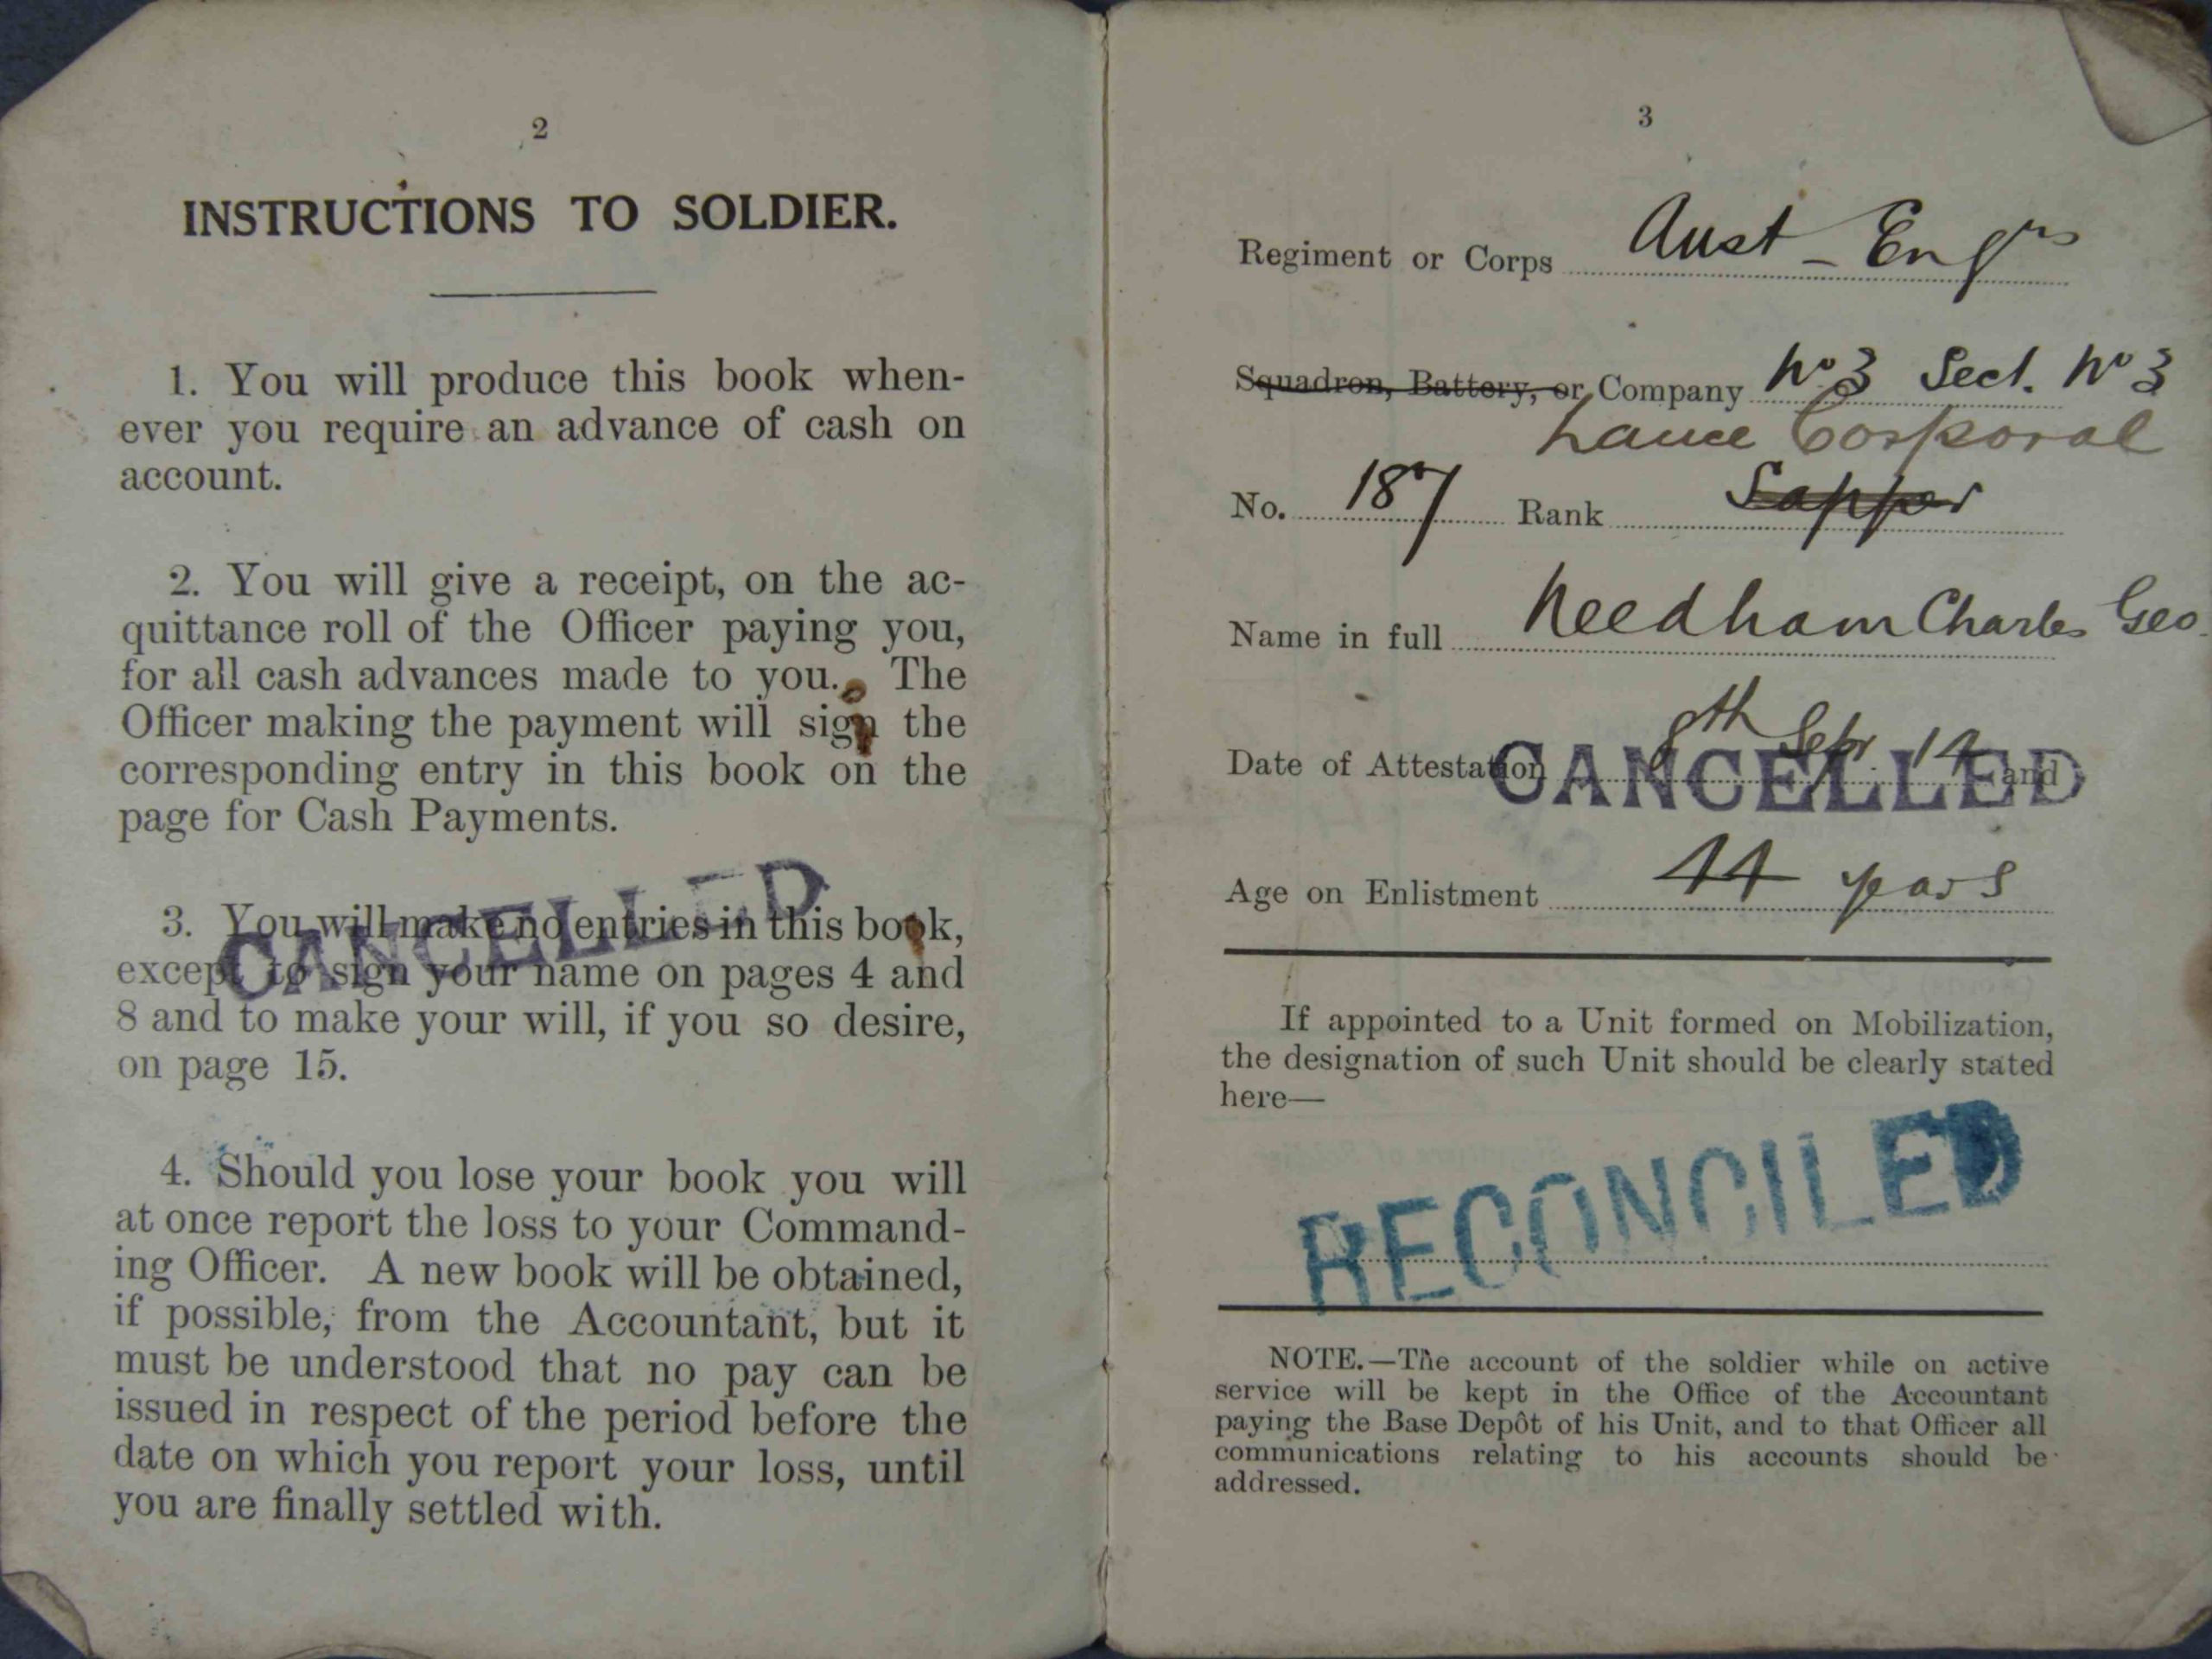 2
INSTRUCTIONS TO SOLDIER.
1. You will produce this book when-
ever you require an advance of cash on
account.
2. You will give a receipt, on the ac-
quittance roll of the Officer paying you,
for all cash advances made to you. The
Officer making the payment will sign the
corresponding entry in this book on the
page for Cash Payments.
3. You will make no entries in this book,
except to sign your name on pages 4 and
8 and to make your will, if you so desire,
on page 15.
CANCELLED
4. Should you lose your book you will
at once report the loss to your Command-
ing Officer. A new book will be obtained,
if possible, from the Accountant, but it
must be understood that no pay can be
issued in respect of the period before the
date on which you report your loss, until
you are finally settled with.
3
Regiment or Corps Aust - Engrs
Squadron, Battery, or Company No 3 Sect. No 3
Lance Corporal
No. 187 Rank Sapper
Name in full Needham Charles Geo.
Date of Attestation 8th Sepr. 14 and
CANCELLED
Age on Enlistment 44 years
If appointed to a Unit formed on Mobilization,
the designation of such Unit should be clearly stated
here—
RECONCILED
NOTE.—The account of the soldier while on active
service will be kept in the Office of the Accountant
paying the Base Depôt of his Unit, and to that Officer all
communications relating to his accounts should be
addressed.